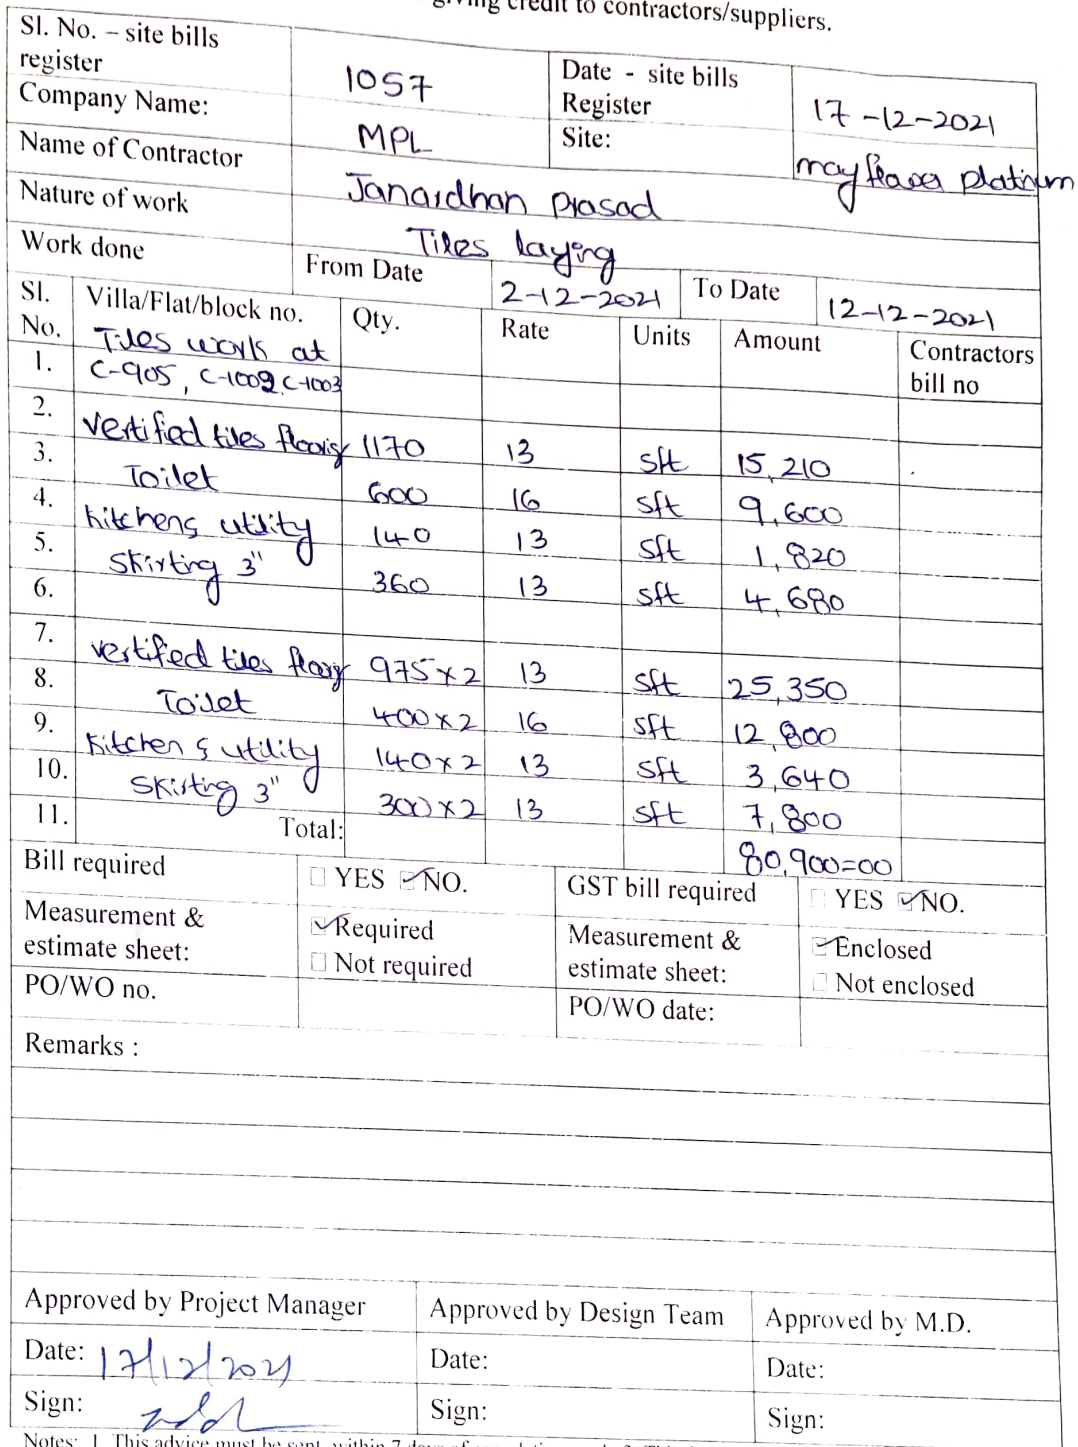 giving credit to contractors/suppliers.
Sl. No. – site bills register 1057 Date - site bills Register 17-12-2021
Company Name: MPL Site: mayflower platinum
Name of Contractor Janardhan prasad
Nature of work Tiles laying
Work done From Date 2-12-2021 To Date 12-12-2021
Sl. No. Villa/Flat/block no. Qty. Rate Units Amount Contractors bill no
1. Tiles work at
C-905, C-1002, C-1003
2.
3. vertified tiles flooring 1170 13 sft 15,210
4. Toilet 600 16 sft 9,600
5. kitchen & utility 140 13 sft 1,820
6. Skirting 3" 360 13 sft 4,680
7.
8. vertified tiles flooring 975x2 13 sft 25,350
9. Toilet 400x2 16 sft 12,800
10. kitchen & utility 140x2 13 sft 3,640
11. Skirting 3" 300x2 13 sft 7,800
Total: 80,900=00
Bill required YES NO. GST bill required YES NO.
Measurement & estimate sheet: Required Not required Measurement & estimate sheet: Enclosed Not enclosed
PO/WO no. PO/WO date:
Remarks :
Approved by Project Manager Approved by Design Team Approved by M.D.
Date: 17/12/2021 Date: Date:
Sign: Sign: Sign:
Notes: 1. This advice must be sent within 7 days of